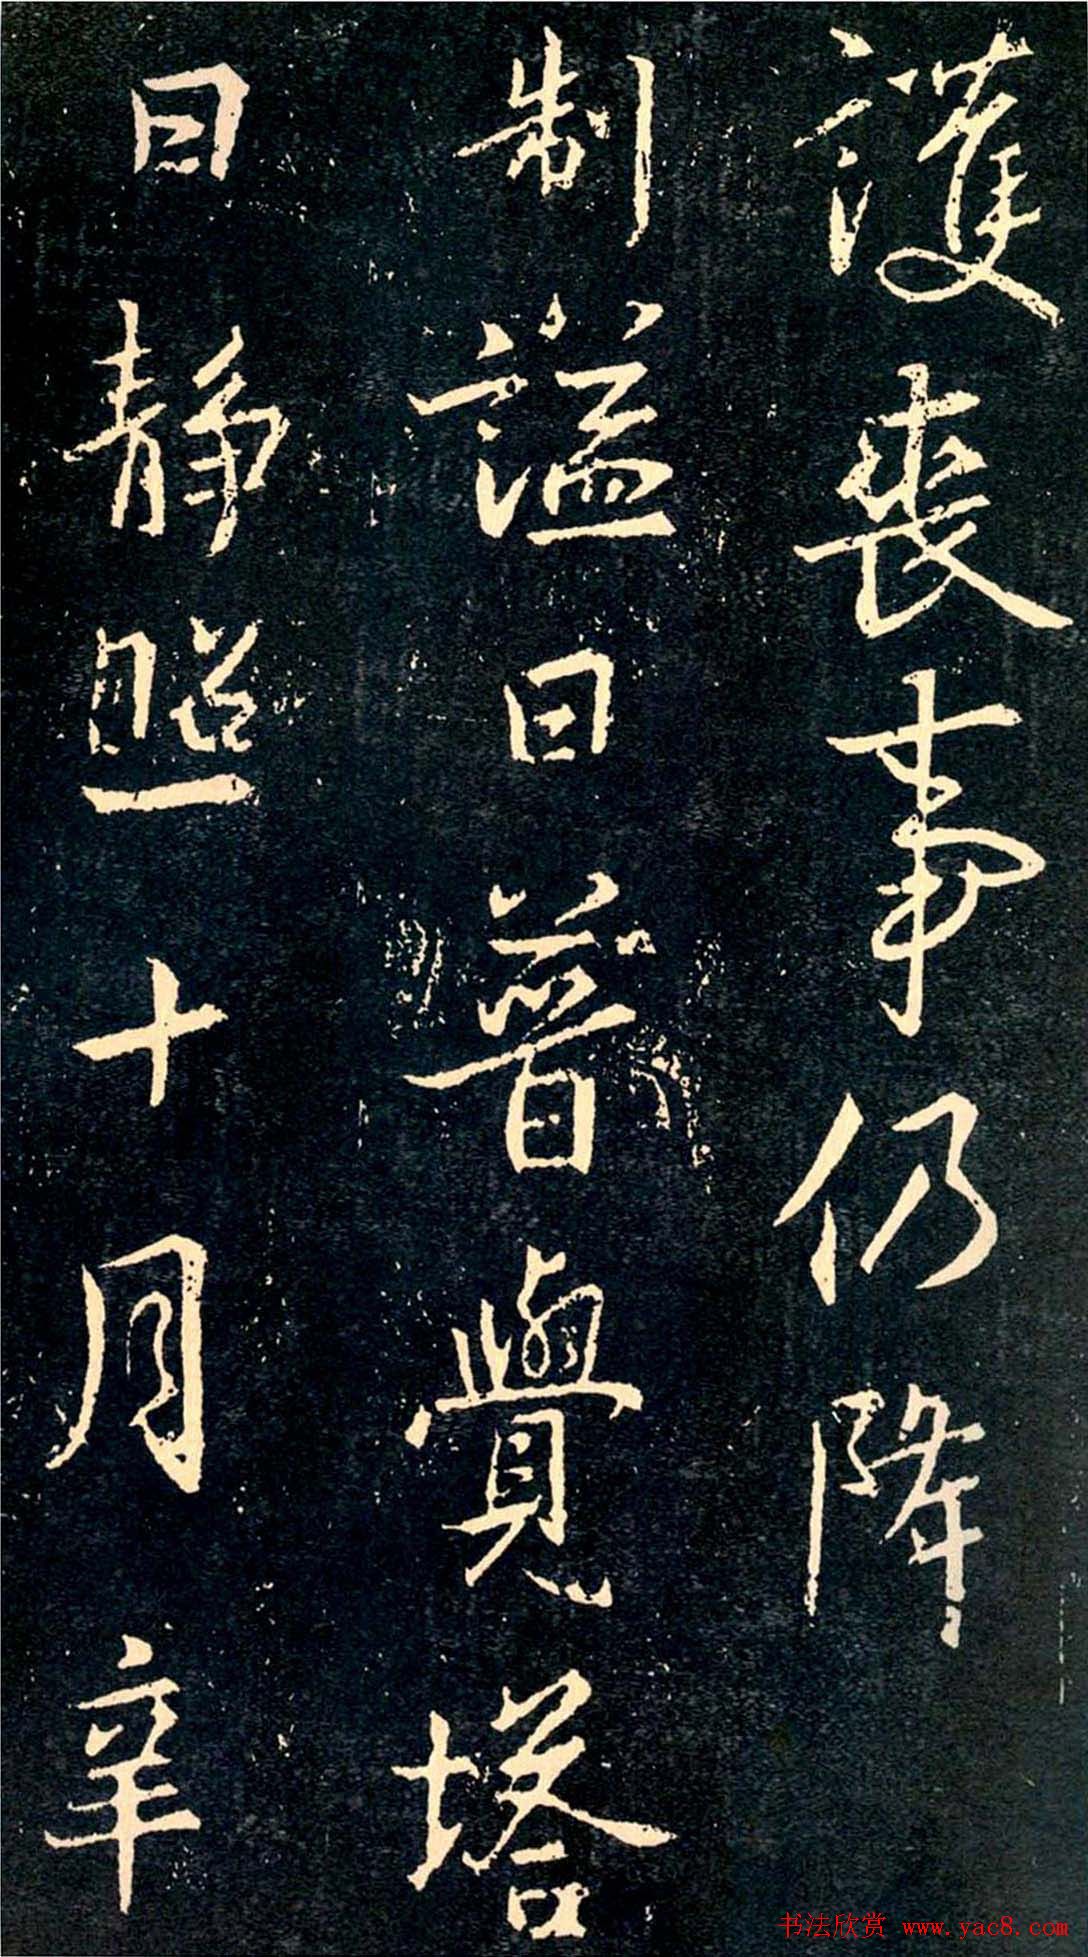 護喪事仍降
制謚曰普覺塔
曰静照十月辛
书法欣赏 www.yac8.com